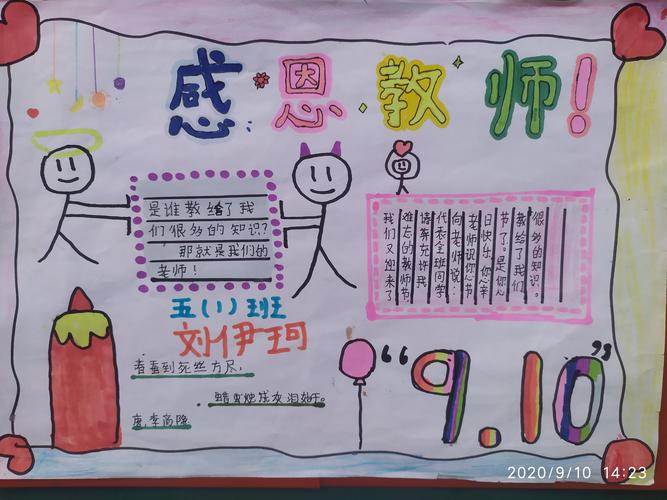 感恩教师！
是谁教给了我
们很多的知识？
那就是我们的
老师！
我们又迎来了
难忘的教师节
请允许我
代表全班同学
向老师说：
老师 您节
日快乐，您辛
了。是您
教给了我们
很多的知识。
五（1）班
刘伊珂
到死丝方尽，
成灰泪 干。
唐.李商隐
“9.10”
2020/9/10 14:23